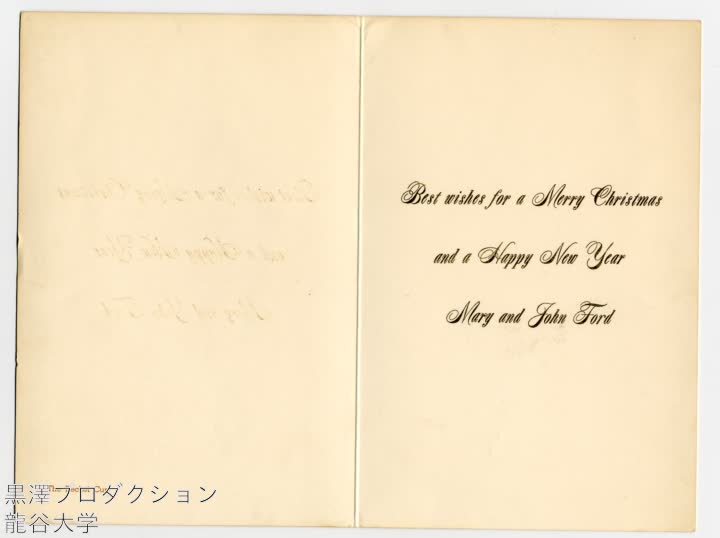 Best wishes for a Merry Christmas
and a Happy New Year
Mary and John Ford
黒澤プロダクション
龍谷大学